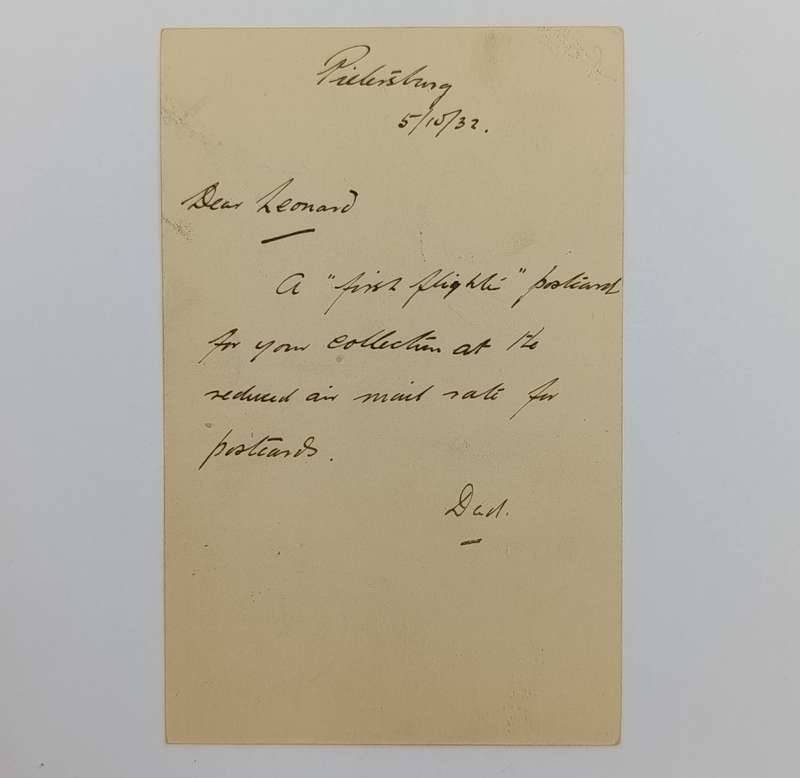 Pietersburg
5/10/32.
Dear Leonard
A "first flight" postcard
for your collection at the
reduced air mail rate for
postcards.
Dad.